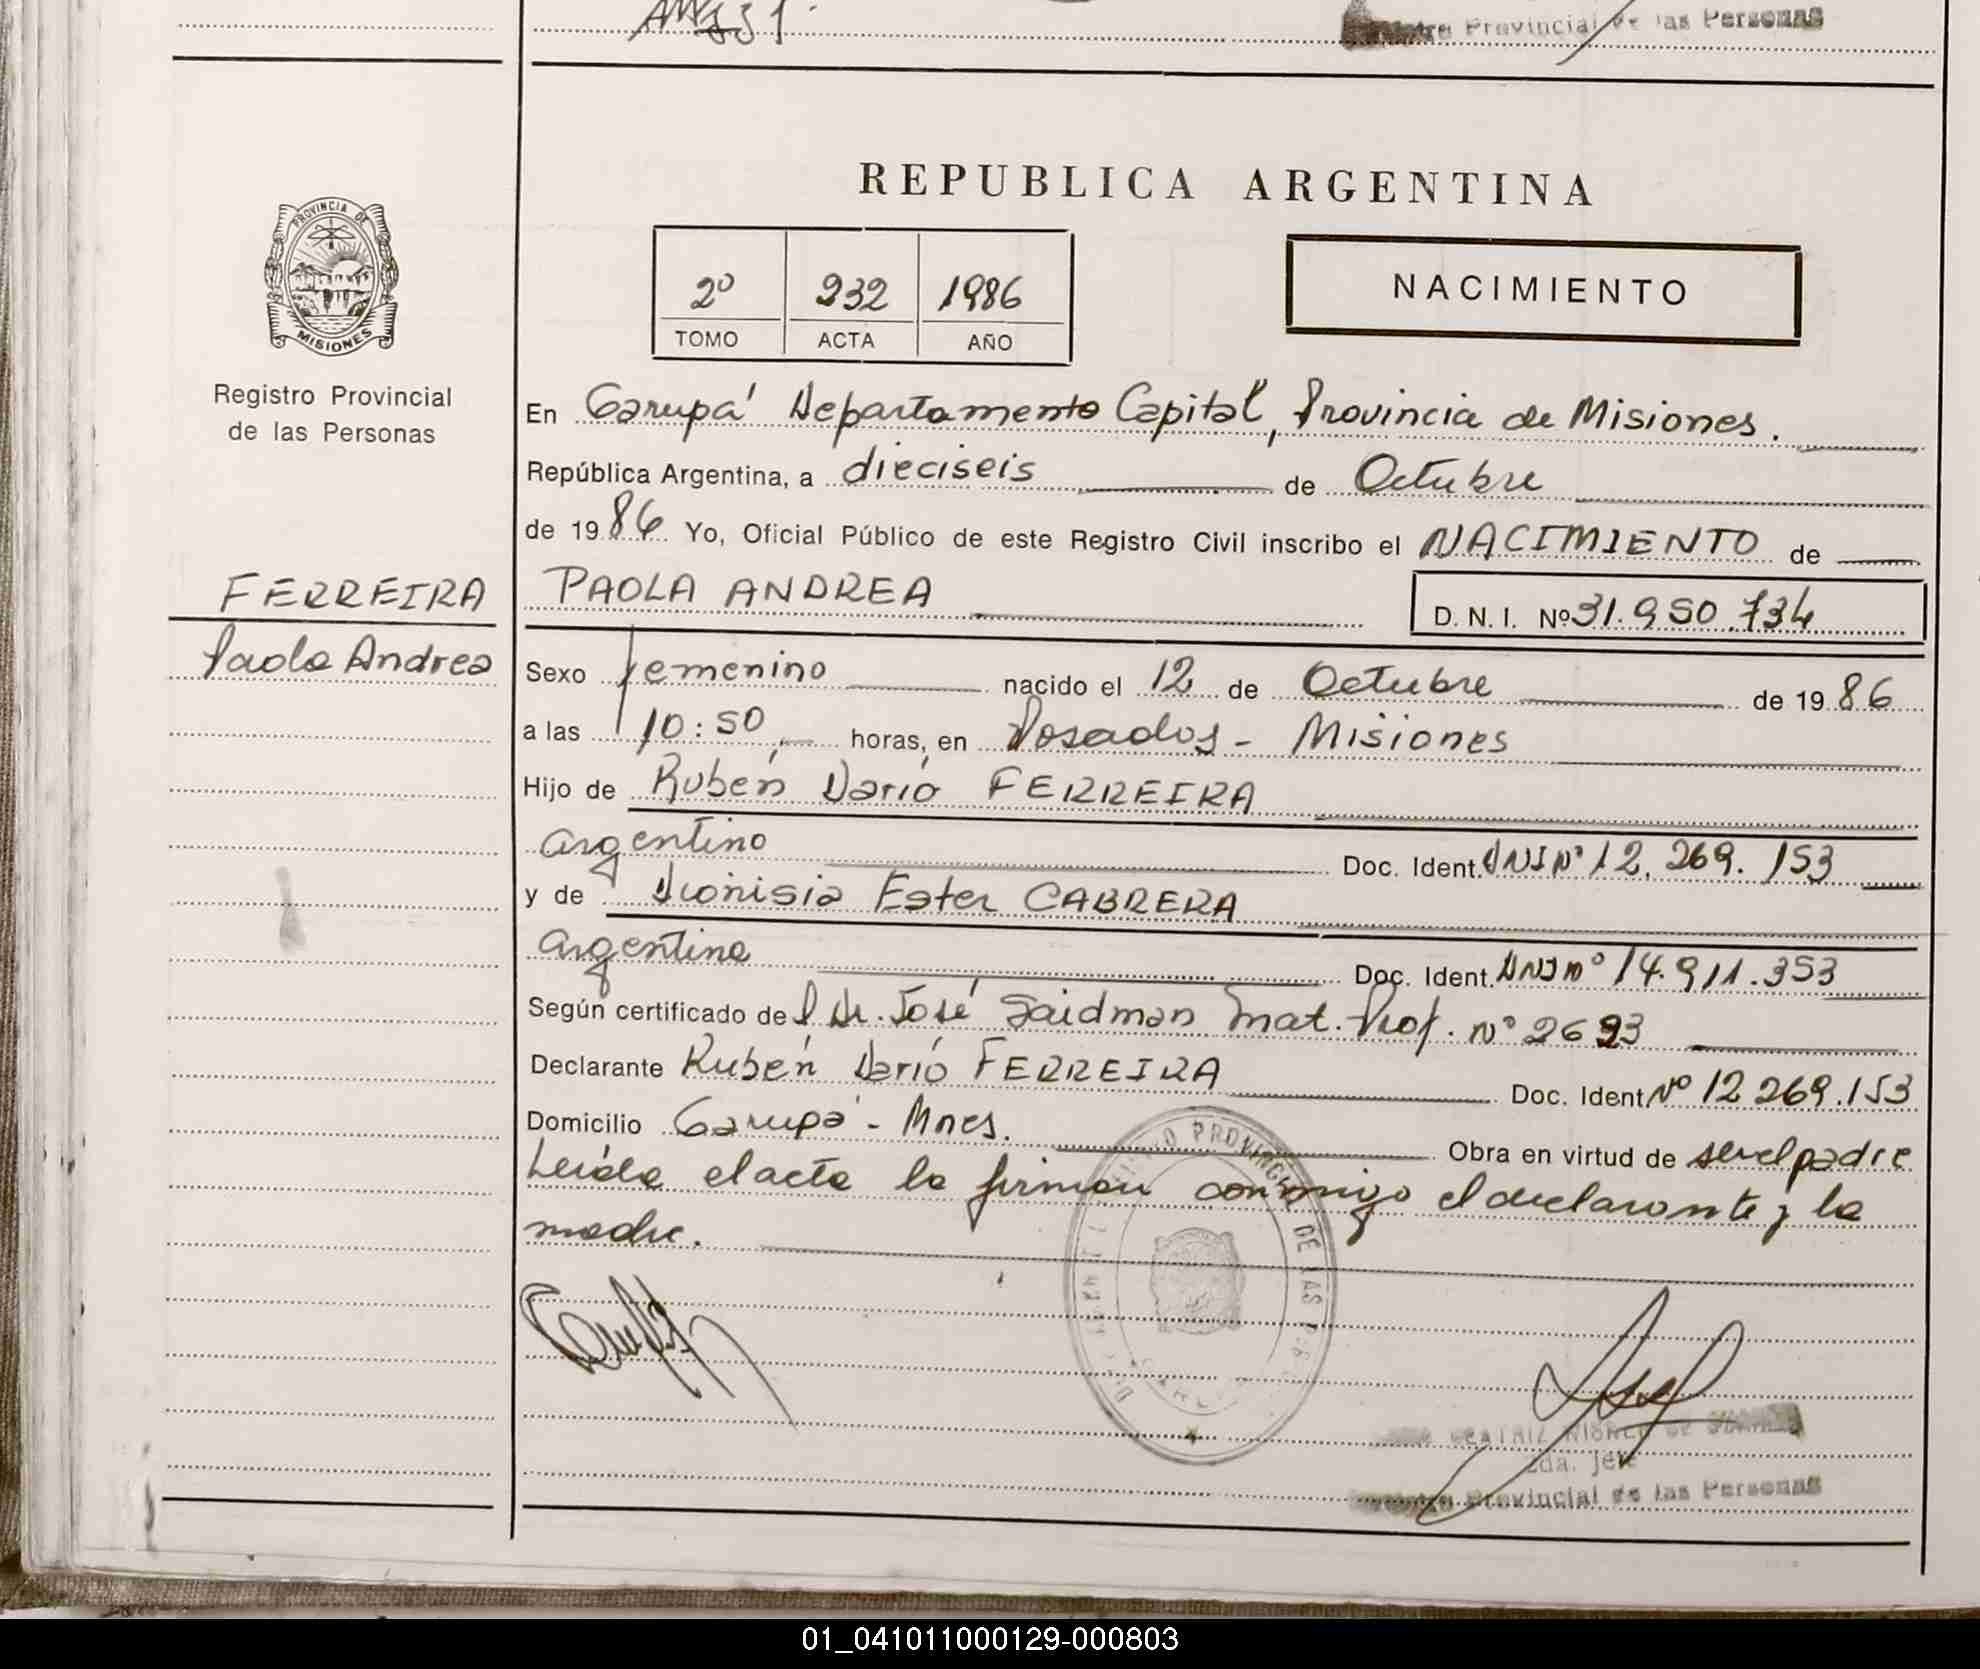 Registro Provincial de las Personas
REPUBLICA ARGENTINA
PROVINCIA DE
MISIONES
2º 232 1986
TOMO ACTA AÑO
NACIMIENTO
Registro Provincial
de las Personas
En Garupá Departamento Capital, Provincia de Misiones.
República Argentina, a dieciseis de Octubre
de 1986 Yo, Oficial Público de este Registro Civil inscribo el NACIMIENTO de
FERREIRA
Paola Andrea
PAOLA ANDREA
D. N. I. Nº 31.950.734
Sexo femenino nacido el 12 de Octubre de 1986
a las 10:50 horas, en Posadas - Misiones
Hijo de Rubén Darío FERREIRA
argentino Doc. Ident. DNI Nº 12.269.153
y de Dionisia Ester CABRERA
argentina Doc. Ident. DNI nº 14.911.353
Según certificado del Dr. José Saidman Mat. Prof. Nº 2693
Declarante Rubén Darío FERREIRA Doc. Ident Nº 12 269.153
Domicilio Garupá - Mnes. Obra en virtud de ser el padre
Leída el acta la firman conmigo el declarante y la
madre.
PROVINCIAL DE LAS
BEATRIZ DE
2da. Jefe
Registro Provincial de las Personas
01_041011000129-000803